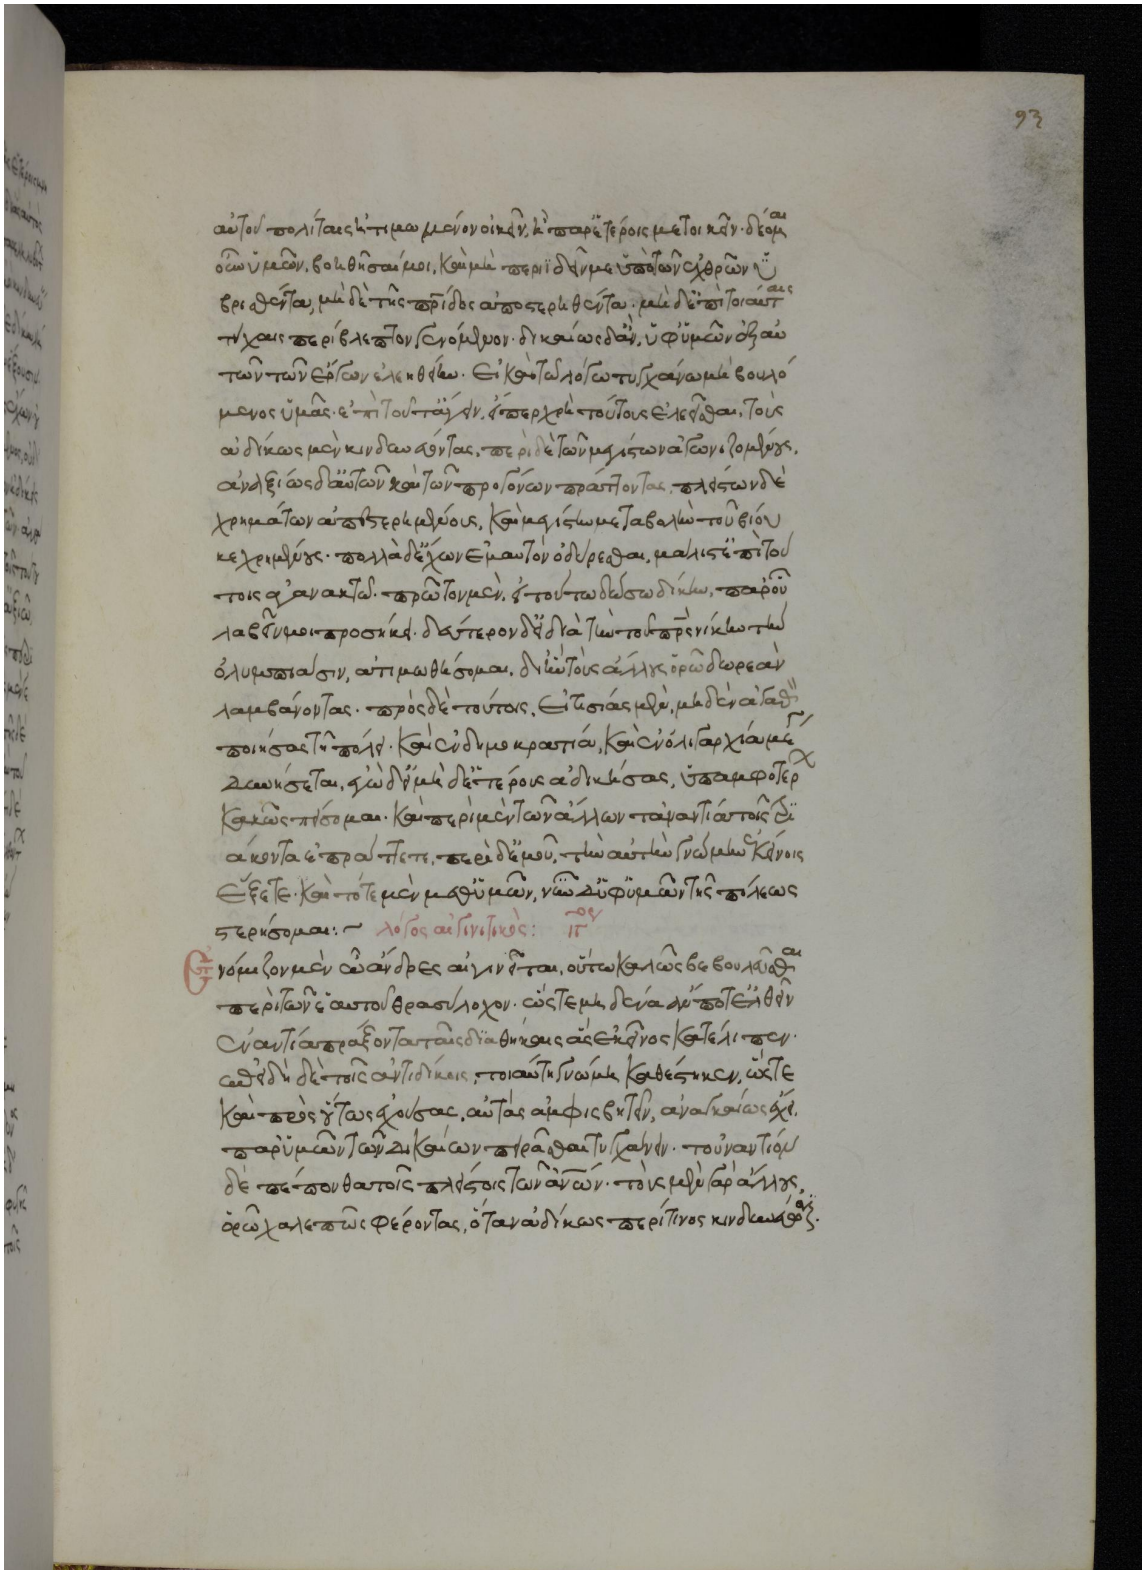 93
αὐτοῦ πολίταις ἠτιμωμένον οἰκεῖν, ἢ παρ' ἑτέροις μετοικεῖν· δέομαι
οὖν ὑμῶν, βοηθῆσαί μοι, καὶ μὴ περιϊδεῖν με ὑπὸ τῶν ἐχθρῶν ὑ
βρισθέντα, μὴ δὲ τῆς πρίδος ἀποστερηθέντα· μὴ δ' ἐπὶ τοιαύταις
τύχαις περίβλεπτον γενόμενον· δικαίως δ' ἂν, ὑφ' ὑμῶν ἐξ αὐ
τῶν τῶν ἔργων ἐλεηθείην. εἰ καὶ τῷ λόγῳ τυγχάνω μὴ βουλό
μενος ὑμᾶς· ἐπὶ τοῦτ' ἄγειν, εἴπερ χρὴ τούτους ἐλεεῖσθαι, τοὺς
ἀδίκως μὲν κινδυνεύοντας, περὶ δὲ τῶν μεγίστων ἀγωνιζομένους,
ἀναξίως δ' αὑτῶν καὶ τῶν προγόνων πράττοντας, πλείστων δὲ
χρημάτων ἀπεστερημένους, καὶ μεγίστῃ μεταβολῇ τοῦ βίου
κεχρημένους· πολλὰ δ' ἔχων ἐμαυτὸν ὀδύρεσθαι, μάλιστ' ἐπὶ τού
τοις ἀγανακτῶ· πρῶτον μὲν, εἰ τούτῳ δώσω δίκην, παρ' οὗ
λαβεῖν μοι προσήκει· δεύτερον δ' εἰ διὰ τὴν τοῦ πρς νίκην τὴν
ὀλυμπιάσιν, ἀτιμωθήσομαι, δι' ἣν τοὺς ἄλλους ὁρῶ δωρεὰν
λαμβάνοντας· πρὸς δὲ τούτοις, εἰ τισίας μὲν, μηδὲν ἀγαθὸν
ποιήσας τὴν πόλιν· καὶ ἐν δημοκρατίᾳ, καὶ ἐν ὀλιγαρχίᾳ μέγα
δυνήσεται, ἐγὼ δ' εἰ μὴ δ' ἑτέρους ἀδικήσας, ὑπ' ἀμφοτέρων
κακῶς πείσομαι· καὶ περὶ μὲν τῶν ἄλλων τἀναντία τοῖς τρι
άκοντα ἐπράττετε, περὶ δ' ἐμοῦ, τὴν αὐτὴν γνώμην ἐκείνοις
ἕξετε· καὶ τότε μὲν μεθ' ὑμῶν, νῦν δ' ὑφ' ὑμῶν τῆς πόλεως
στερήσομαι:~ λόγος αἰγινητικὸς: πρ
Ἐνόμιζον μὲν ὦ ἄνδρες αἰγινῆται, οὕτω καλῶς βεβουλεῦσθαι
περὶ τῶν ἑαυτοῦ θρασύλοχον· ὥστε μηδένα ἄν ποτ' ἐλθεῖν
ἐναντία πράξοντα ταῖς διαθήκαις ἃς ἐκεῖνος κατέλιπεν·
ἐπειδὴ δὲ τοῖς ἀντιδίκοις, τοιαύτη γνώμη καθέστηκεν, ὥστε
καὶ πρὸς οὕτως ἐχούσας, αὐτὰς ἀμφισβητεῖν, ἀναγκαίως ἔχει,
παρ' ὑμῶν τῶν δικαίων πειρᾶσθαι τυγχάνειν· τοὐναντίον
δὲ πέπονθα τοῖς πλείστοις τῶν ἀνῶν· τοὺς μὲν γὰρ ἄλλους,
ὁρῶ χαλεπῶς φέροντας, ὅταν ἀδίκως περί τινος κινδυνεύωσιν.